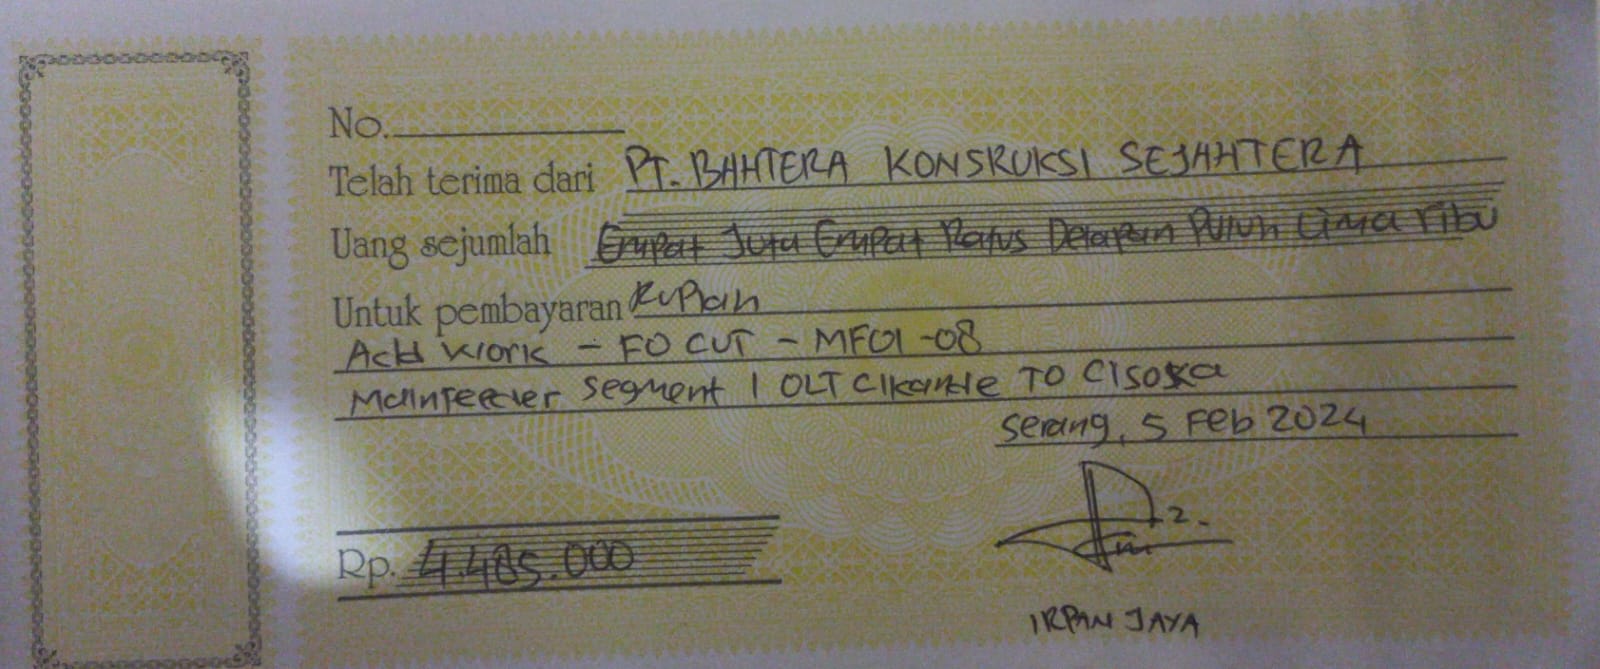 No.
Telah terima dari PT. BAHTERA KONSRUKSI SEJAHTERA
Uang sejumlah Empat Juta Empat Ratus Delapan Puluh Lima ribu
Untuk pembayaran Rupiah
Add Work - FO CUT - MF01-08
Mainfeeder segment 1 OLT Cikande TO Cisoka
Serang, 5 Feb 2024
Rp. 4.485.000
IRPAN JAYA